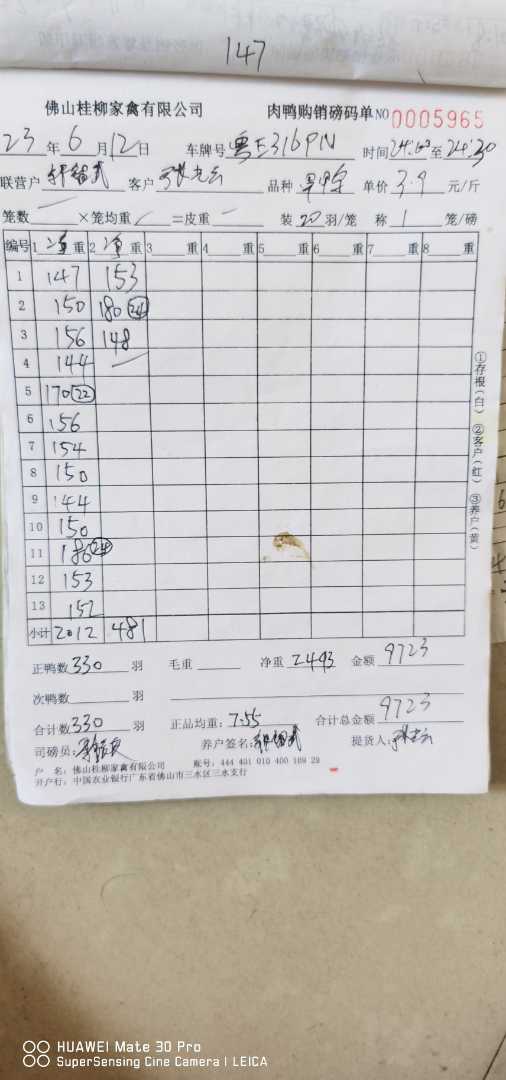 147
佛山桂柳家禽有限公司 肉鸭购销磅码单 NO 0005965
23 年 6 月 12 日 车牌号 粤E316PN 时间 24:00 至 24:30
联营户 客户 品种 单价 3.9 元/斤
笼数 ×笼均重 =皮重 装 20 羽/笼 称 1 笼/磅
编号 1 净 重 2 净 重 3 重 4 重 5 重 6 重 7 重 8 重
1 147 153
2 150 180 (24)
3 156 148
4 144
5 170 (22)
6 156
7 154
8 150
9 144
10 150
11 186 (24)
12 153
13 152
小计 2012 481
①存根(白) ②客户(红) ③养户(黄)
正鸭数 330 羽 毛重 净重 2493 金额 9723
次鸭数 羽
合计数 330 羽 正品均重: 7.55 合计总金额 9723
司磅员: 养户签名: 提货人:
户 名: 佛山桂柳家禽有限公司 账号: 444 401 010 400 189 29
开户行: 中国农业银行广东省佛山市三水区三水支行
HUAWEI Mate 30 Pro
SuperSensing Cine Camera | LEICA